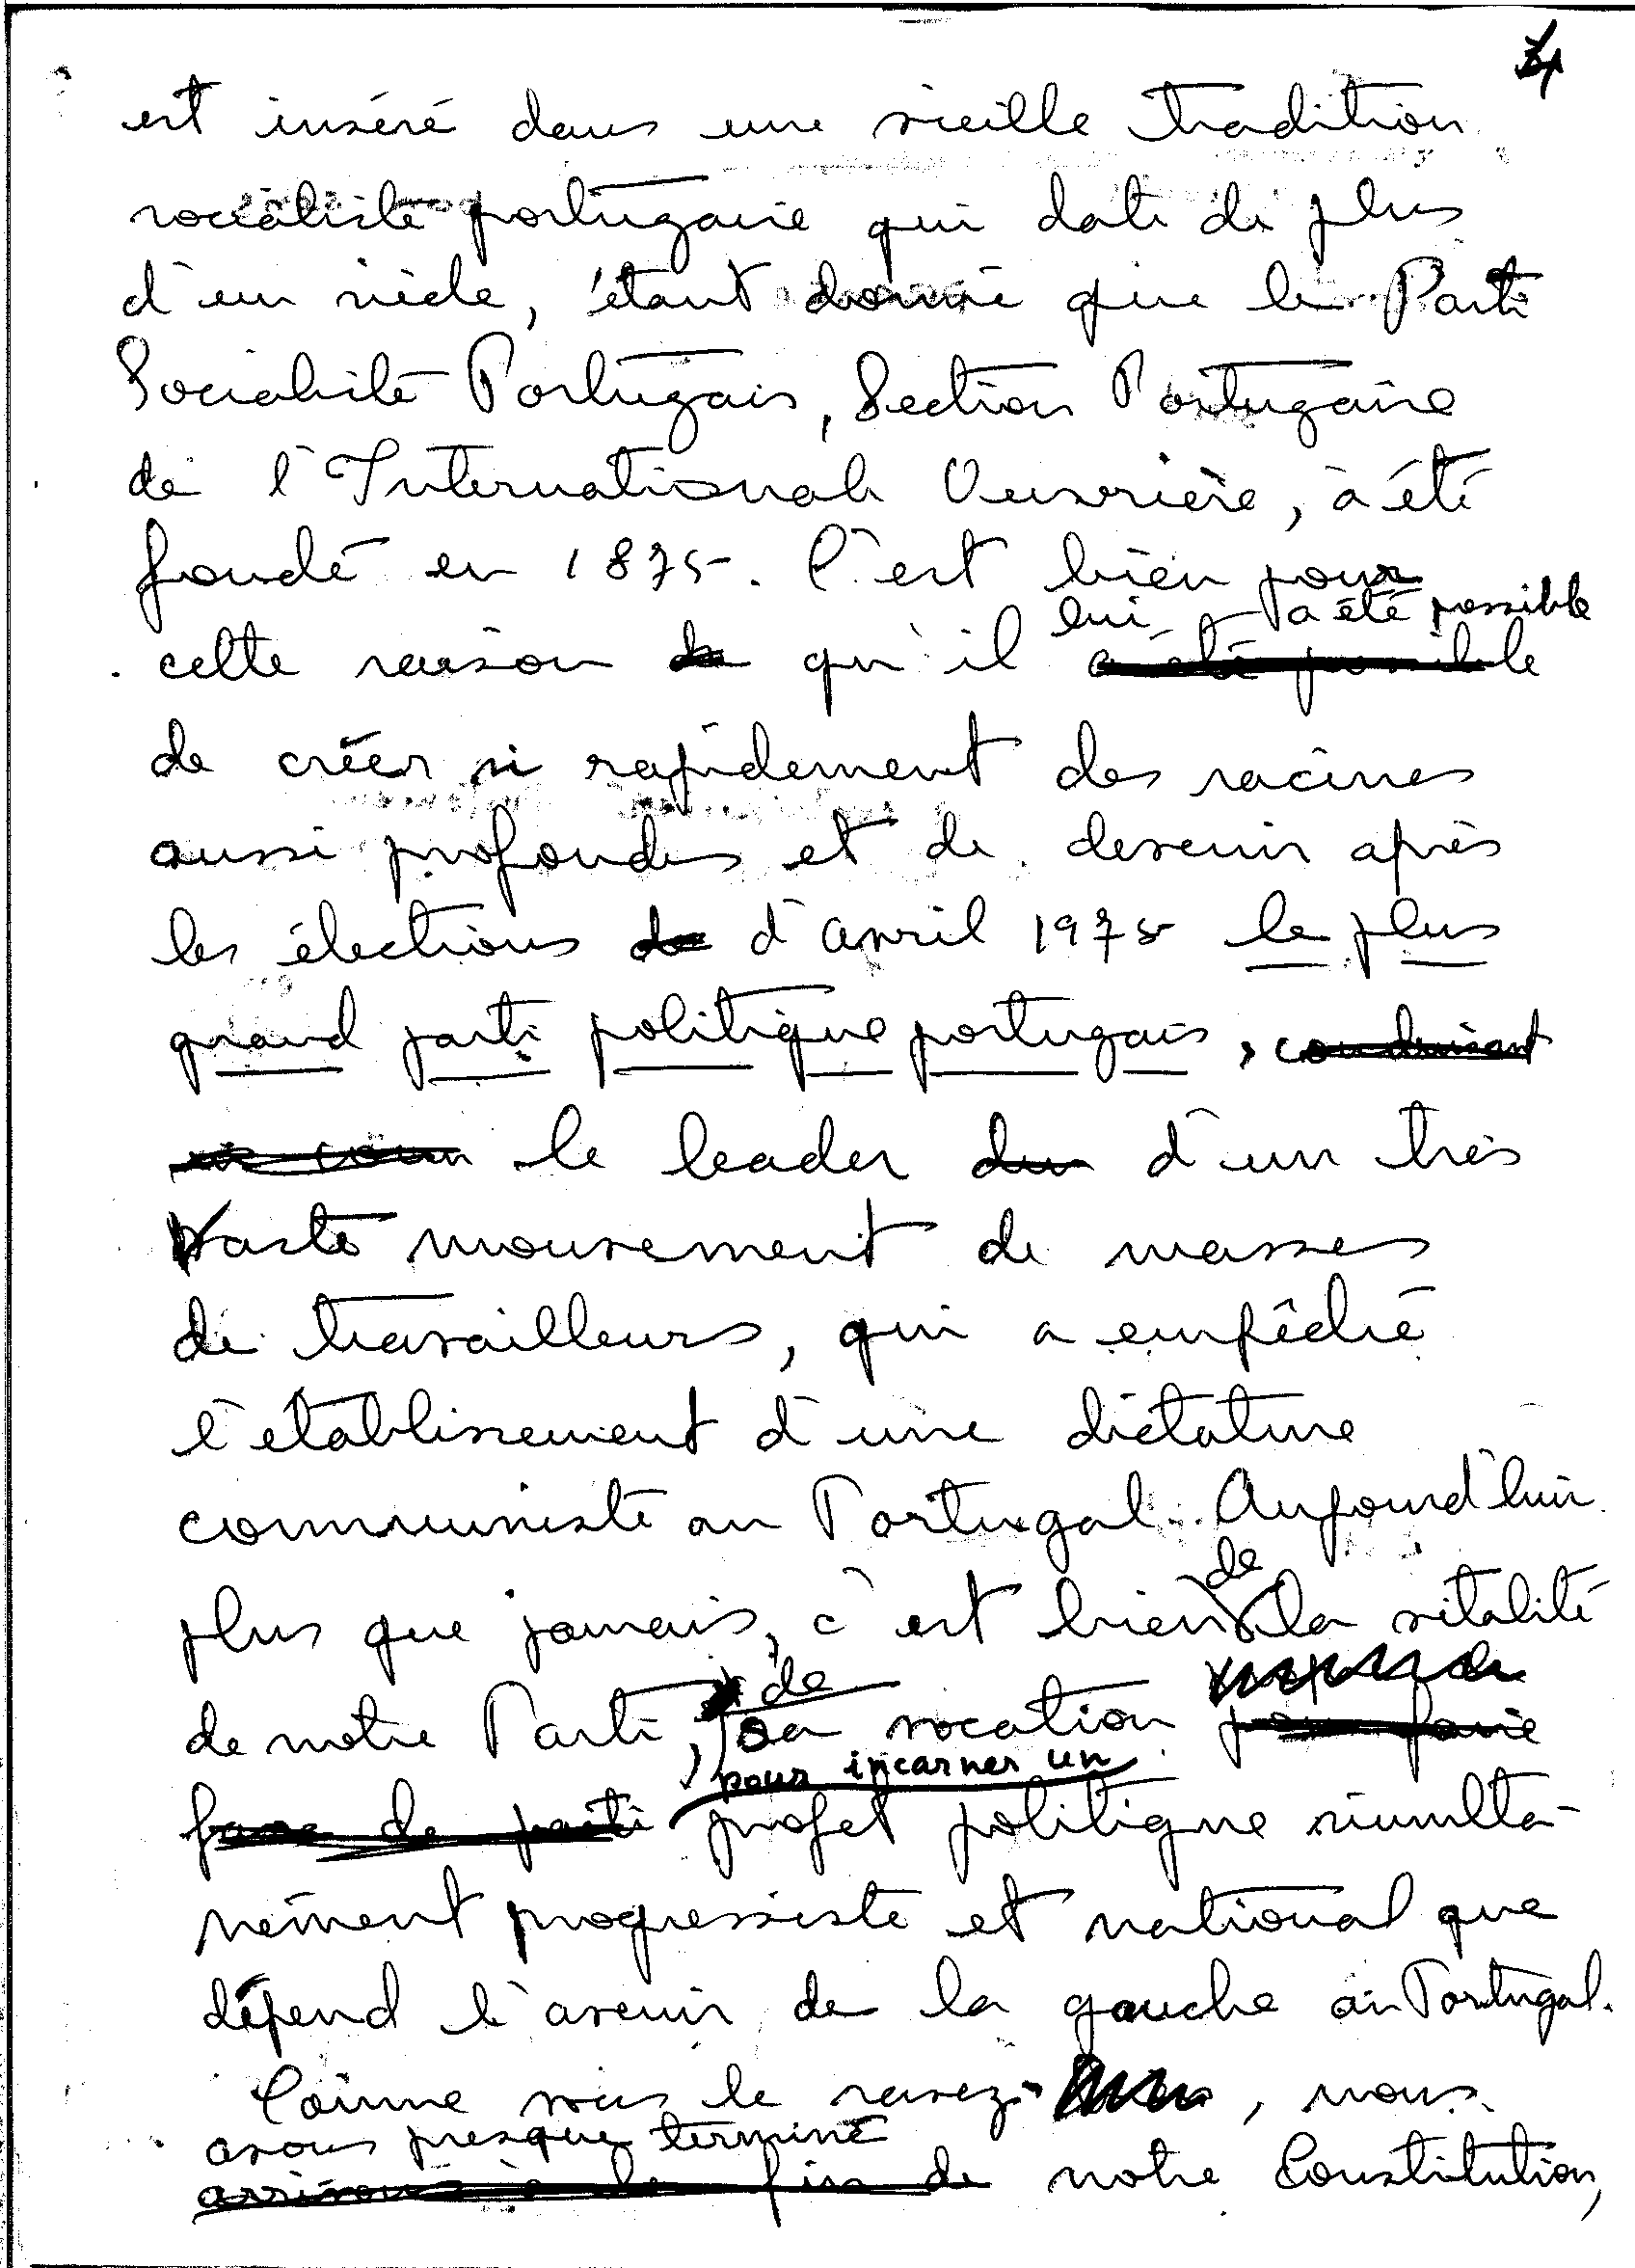 est inséré dans une vieille tradition
socialiste portugaise qui date de plus
d'un siècle, étant donné que le Parti
Socialiste Portugais, Section Portugaise
de l'Internationale Ouvrière, a été
fondé en 1875. C'est bien pour
lui a été possible
cette raison de qu'il a été possible
de créer si rapidement des racines
aussi profondes et de devenir après
les élections de d'avril 1975 le plus
grand parti politique portugais, conduisant
le leader du d'un très
vaste mouvement de masses
de travailleurs, qui a empêché
l'établissement d'une dictature
communiste au Portugal. Aujourd'hui
de
plus que jamais, c'est bien la vitalité
de
de notre Parti, sa vocation
pour incarner un
de parti projet politique simulta-
nément progressiste et national que
dépend l'avenir de la gauche au Portugal.
Comme vous le savez, nous
avons presque terminé
arrivons à la fin de notre Constitution,